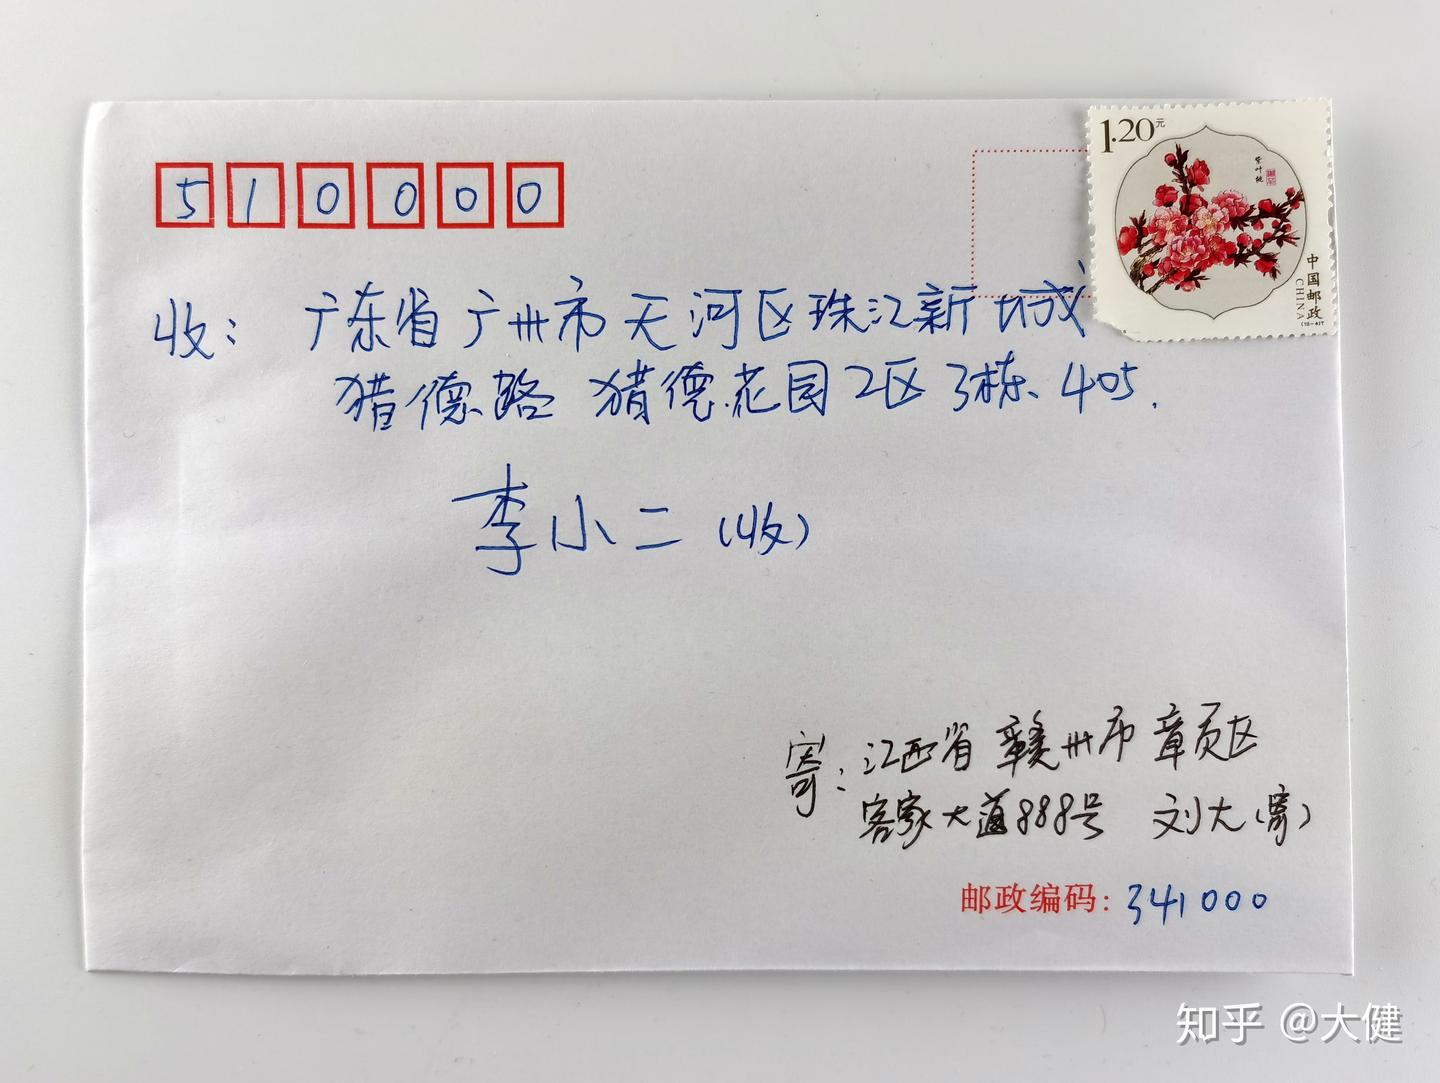 510000
1.20元
紫叶桃
中国邮政
CHINA
(12-4)T
收：广东省广州市天河区珠江新城
猎德路 猎德花园2区3栋 405.
李小二（收）
寄：江西省赣州市章贡区
客家大道888号 刘大（寄）
邮政编码：341000
知乎 @大健